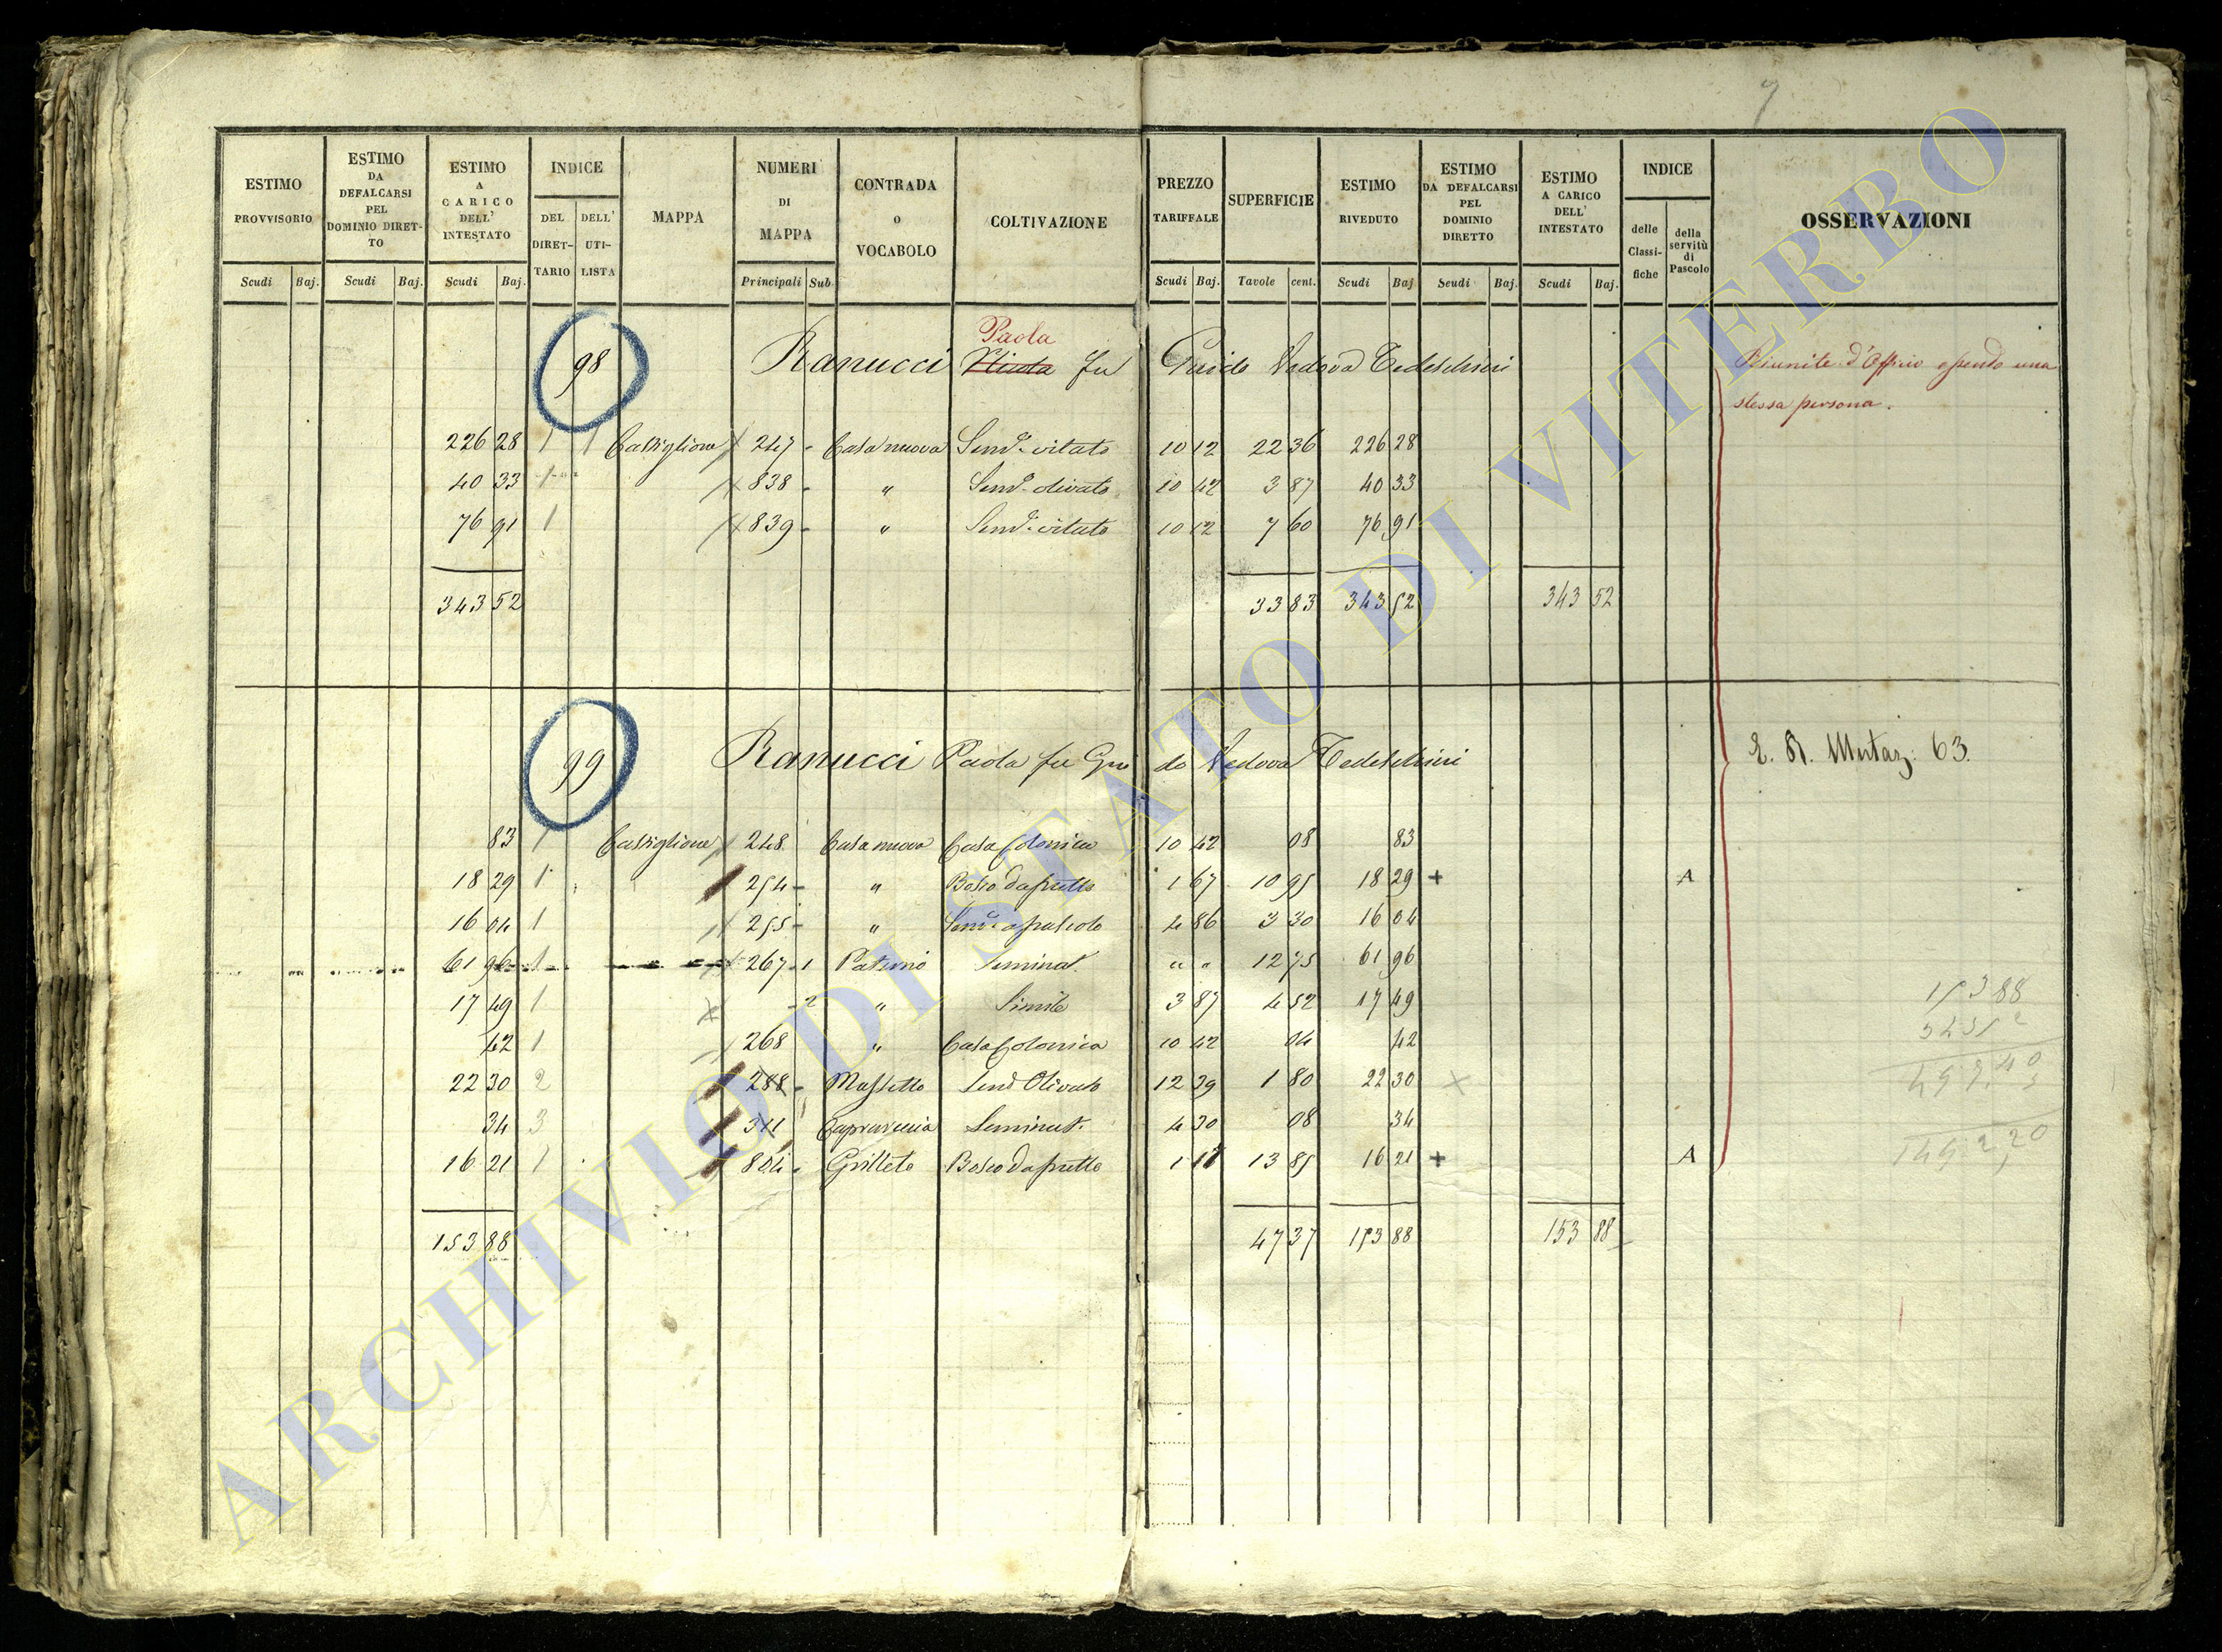 7
ESTIMO PROVVISORIO Scudi Baj.
ESTIMO DA DEFALCARSI PEL DOMINIO DIRET-TO Scudi Baj.
ESTIMO A CARICO DELL' INTESTATO Scudi Baj.
INDICE DEL DIRET-TARIO DELL' UTI-LISTA
MAPPA
NUMERI DI MAPPA Principali Sub
CONTRADA O VOCABOLO
COLTIVAZIONE
PREZZO TARIFFALE Scudi Baj.
SUPERFICIE Tavole cent.
ESTIMO RIVEDUTO Scudi Baj
ESTIMO DA DEFALCARSI PEL DOMINIO DIRETTO Scudi Baj.
ESTIMO A CARICO DELL' INTESTATO Scudi Baj.
INDICE delle Classi-fiche della servitù di Pascolo
OSSERVAZIONI
Paola
98 Ranucci fu Guido Vedova Tedeschini
Riunite d'Officio essendo una
stessa persona.
226 28 1 1 Castiglione 247 - Casa nuova Semo. vitato 10 12 22 36 226 28
40 33 1 838 - " Semo. olivato 10 42 3 87 40 33
76 91 1 839 - " Semo. vitato 10 12 7 60 76 91
343 52 33 83 343 52 343 52
99 Ranucci Paola fu Gui do Vedova Tedeschini
Mutaz: 63.
83 1 Castiglione 248 Casa nuova Casa Colonica 10 42 08 83
18 29 1 254 - " Bosco da frutto 1 67 10 95 18 29 + A
16 04 1 255 - " Semo. a pascolo 4 86 3 30 16 04
61 96 1 267 - 1 Paterno Seminat. " " 12 75 61 96
17 49 1 - 2 " Simile 3 87 4 52 17 49
42 1 268 " Casa Colonica 10 42 04 42
22 30 2 288 - Massetto Semo Olivato 12 39 1 80 22 30
34 3 311 Caprareccia Seminat. 4 30 08 34
16 21 1 804 - Grilleto Bosco da frutto 1 17 13 85 16 21 + A
153 88 47 37 153 88 153 88
153 88
343 52
ARCHIVIO DI STATO DI VITERBO